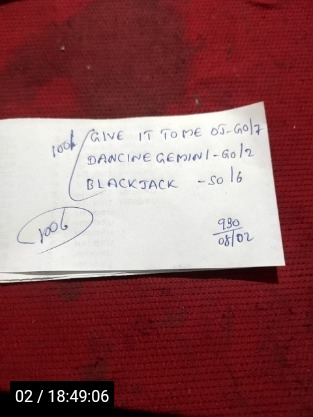 100k GIVE IT TO ME OJ-60/7
DANCINE GEMINI-60/2
BLACKJACK -50/6
1006
930
08/02
02 / 18:49:06